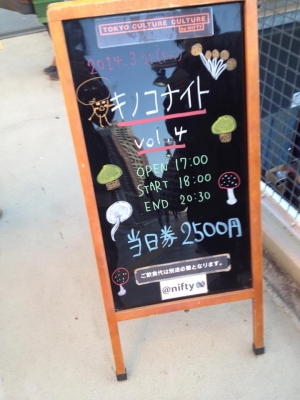 TOKYO CULTURE CULTURE
by @NIFTY
2014.3
キノコナイト
vol.4
OPEN 17:00
START 18:00
END 20:30
当日券 2500円
ご飲食代は別途必要となります。
@nifty